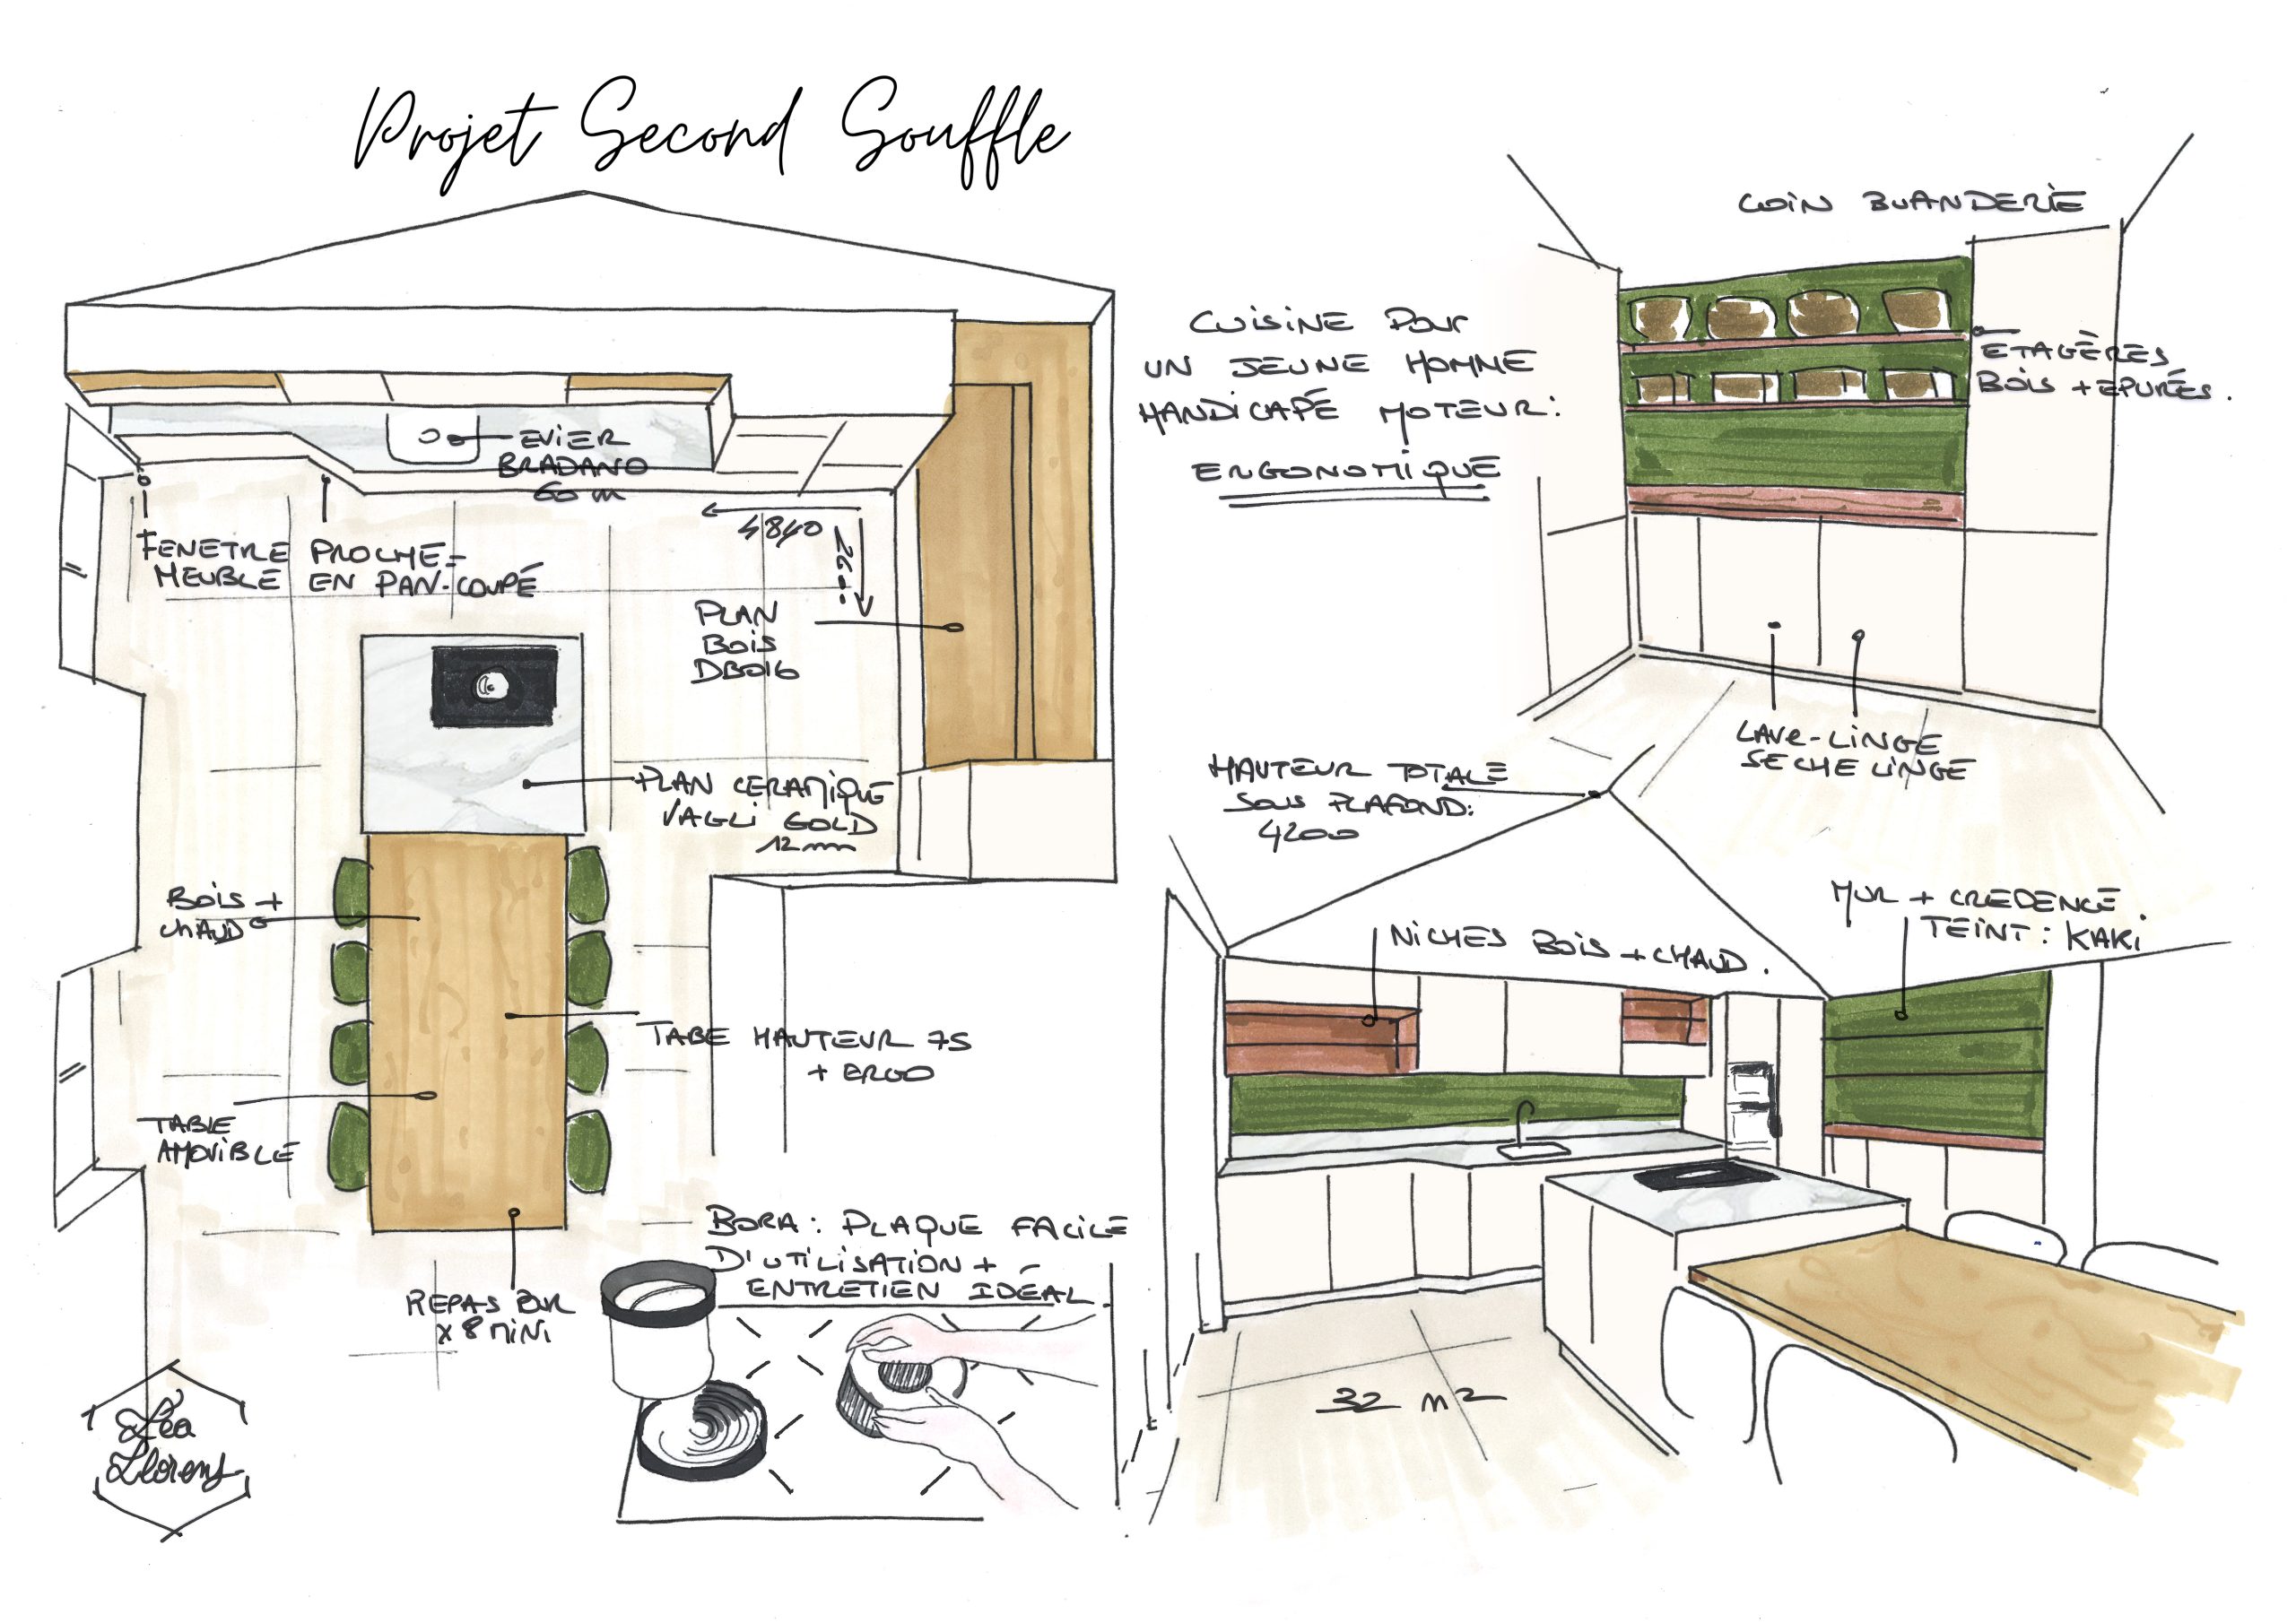 Projet Second Souffle
EVIER
BRADANO
60 m
FENETRE PROCHE =
MEUBLE EN PAN-COUPÉ
4840
PLAN
BOIS
DB016
PLAN CERAMIQUE
VAGLI GOLD
12mm
BOIS +
CHAUD
TABE HAUTEUR 75
+ ERGO
TABLE
AMOVIBLE
REPAS POUR
x 8 MINI
BORA : PLAQUE FACILE
D'UTILISATION +
ENTRETIEN IDÉAL.
Léa
Llorens
CUISINE POUR
UN JEUNE HOMME
HANDICAPÉ MOTEUR :
ERGONOMIQUE
COIN BUANDERIE
ETAGÈRES
BOIS + EPURÉS.
LAVE-LINGE
SECHE LINGE
HAUTEUR TOTALE
SOUS PLAFOND:
4200
NICHES BOIS + CHAUD.
MUR + CREDENCE
TEINT : KAKI.
32 m2